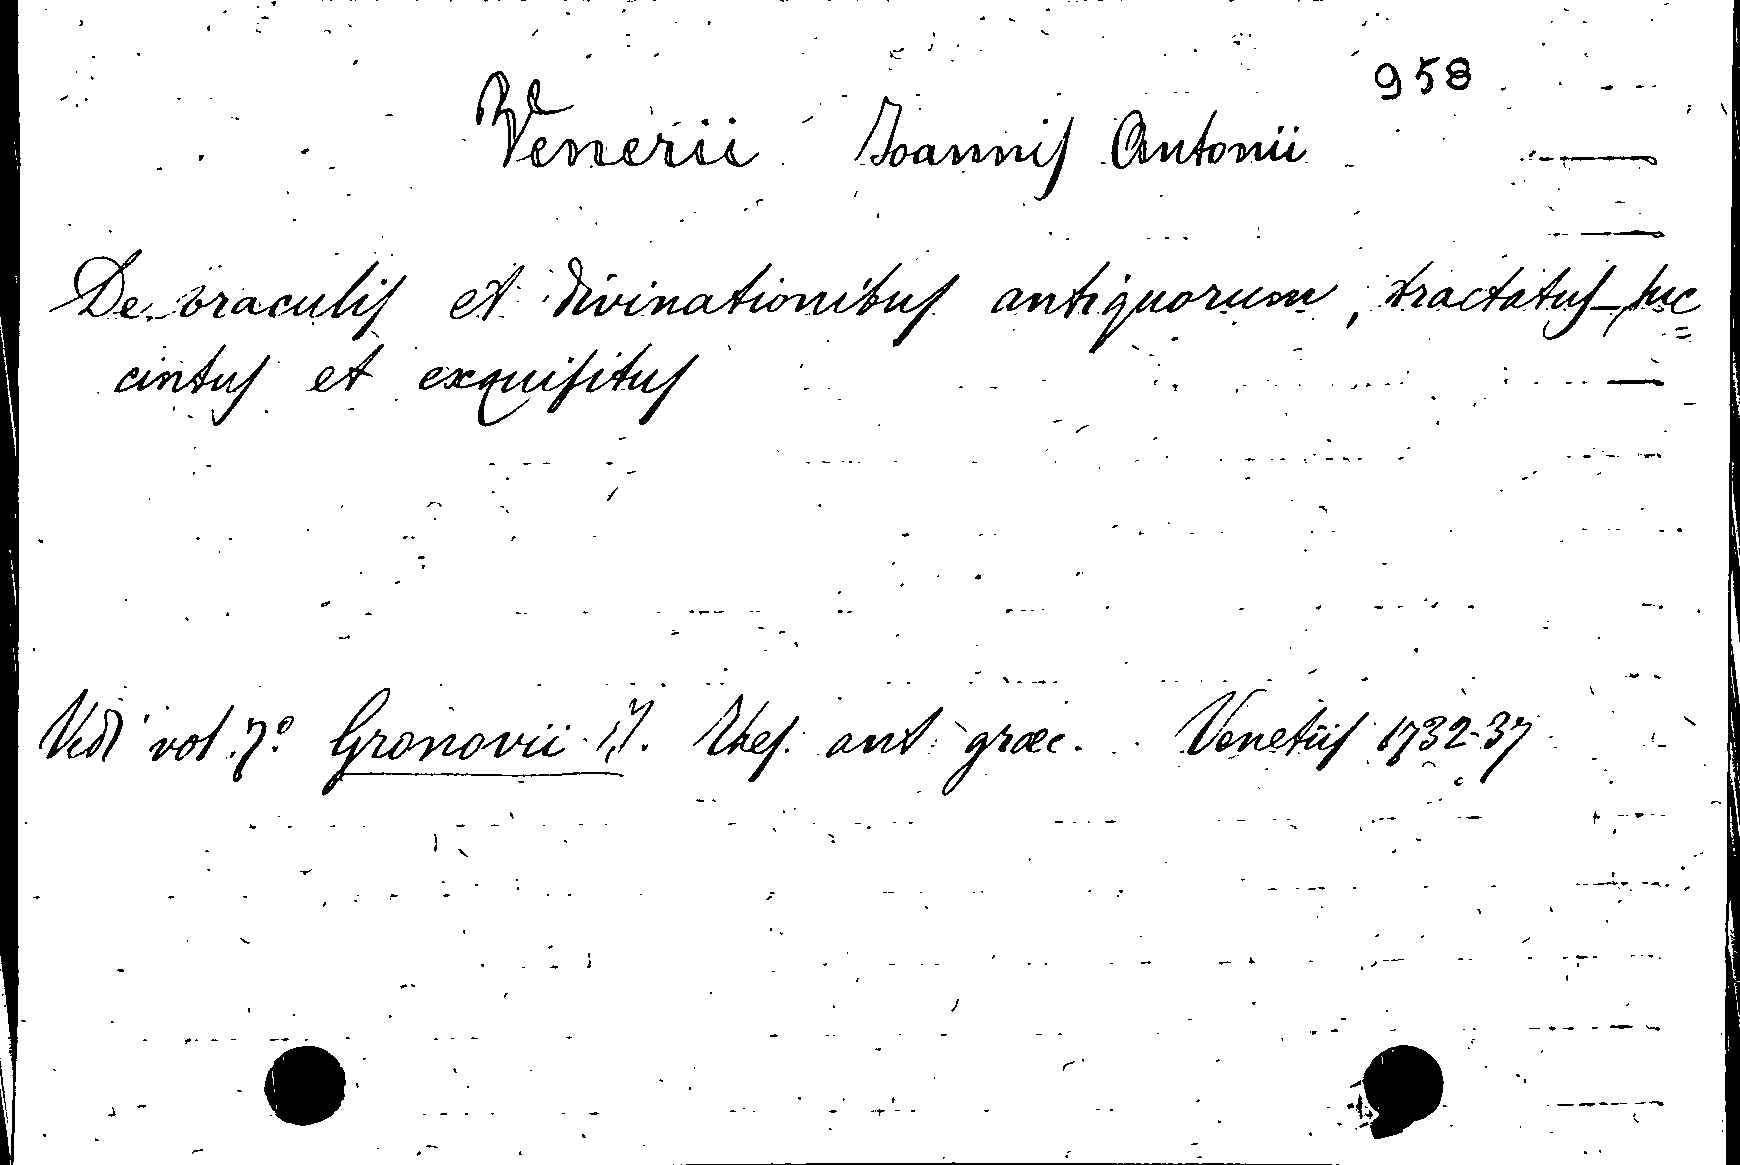 958
Venerii Ioannis Antonii
De oraculis et divinationibus antiquorum, tractatus suc
cintus et exquisitus
Vedi vol. 7º Gronovii I. Thes. ant. græc. Venetiis 1732-37